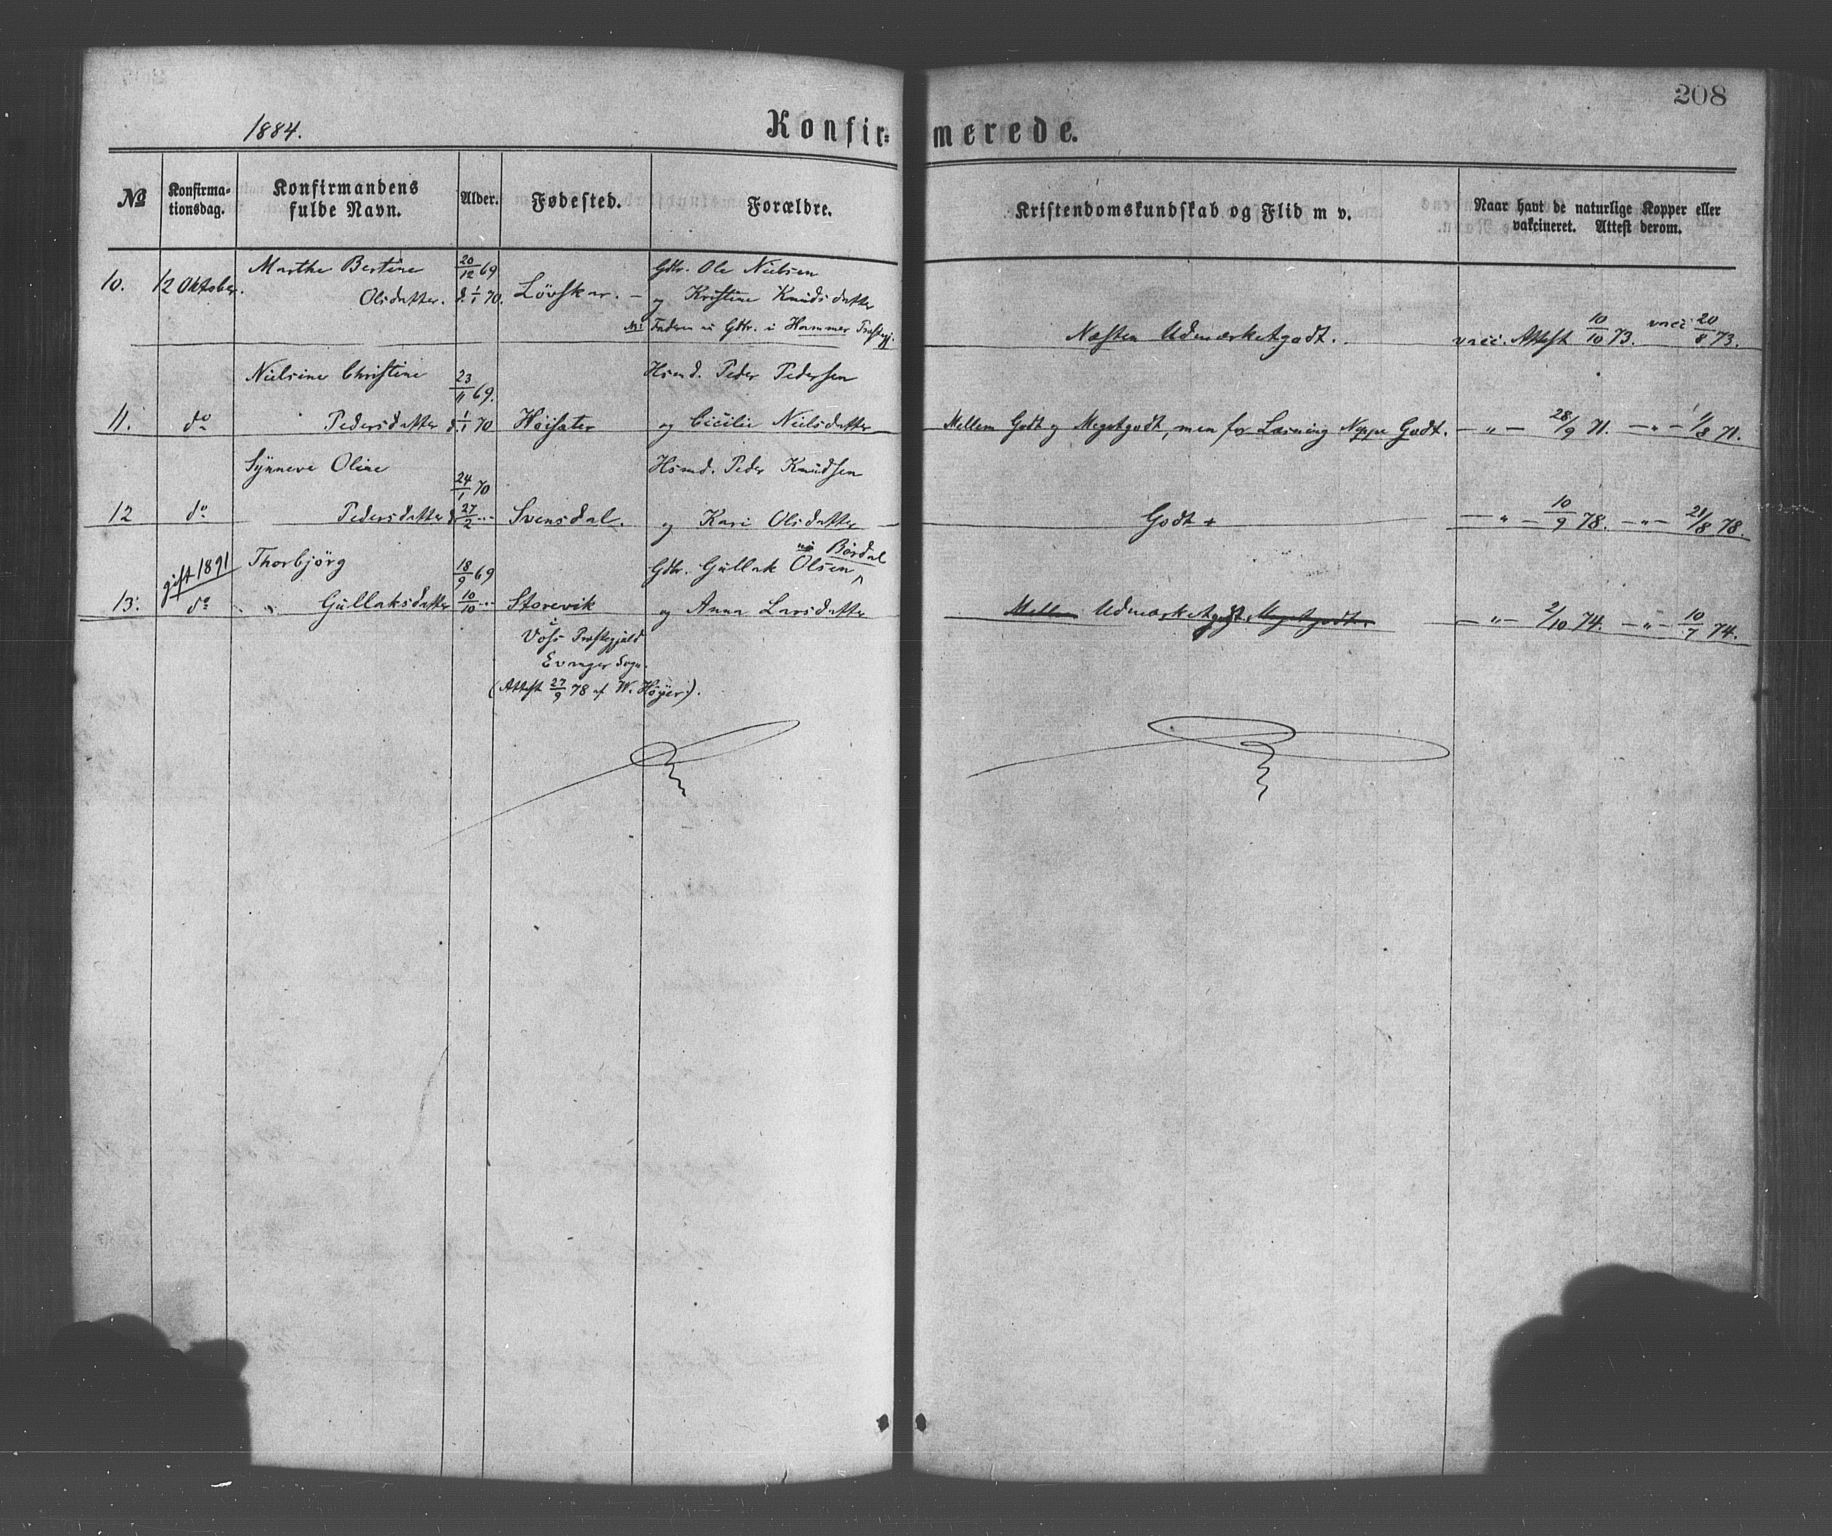 208
1884.
Konfir=
merede.
№
Konfirma-
tionsdag.
Konfirmandens
fulde Navn.
Alder.
Fødested.
Forældre.
Kristendomskundskab og Flid m v.
Naar havt de naturlige Kopper eller
vakcineret. Attest derom.
10. 12 Oktober.
Marthe Bertine
Olsdatter.
20/12 69
d. 1/1 70.
Lövskar. —
Gdbr. Ole Nielsen
og Kristine Knudsdatter
Faderen nu Gdbr. i Hammer Præstegj.
Næsten Udmærketgodt.
vacc. Attest 10/10 73. vacc 20/8 73.
11. do
Nielsine Christine
Pedersdatter
23/11 69.
d. 1/1 70
Høisæter
Hsmd. Peder Pedersen
og Cicilie Nielsdatter
Mellem Godt og Megetgodt, men for Læsning Neppe Godt.
— „ — 28/9 71. — „ — 1/8 71.
12 do
Synneve Oline
Pedersdatter
24/1 70
d. 27/2 ...
Svensdal.
Hsmd. Peder Knudsen
og Kari Olsdatter —
Godt +
— „ — 10/9 78. — „ — 21/8 78.
gift 1891
13. do
Thorbjörg
Gullaksdatter
18/9 69
10/10 ...
Storevik
i
Voss Præstegjeld
Evanger Sogn.
(Attest 27/9 78 af W. Höyer).
nu Børdal
Gdbr. Gullak Olsen
og Anna Larsdatter
Mellem Udmærketgodt. Megetgodt.
— „ — 2/10 74. — „ — 10/7 74.